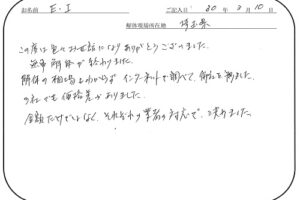 お名前 E・I ご記入日 30年 2月10日
解体現場所在地 埼玉県
この度は色々お世話になりありがとうございました。
無事解体が終わりました。
解体の相場もわからず インターネットで調べて、御社を知りました。
の社でも価格差がありました。
金額だけでなく、それぞれの業者の対応で、決めました。